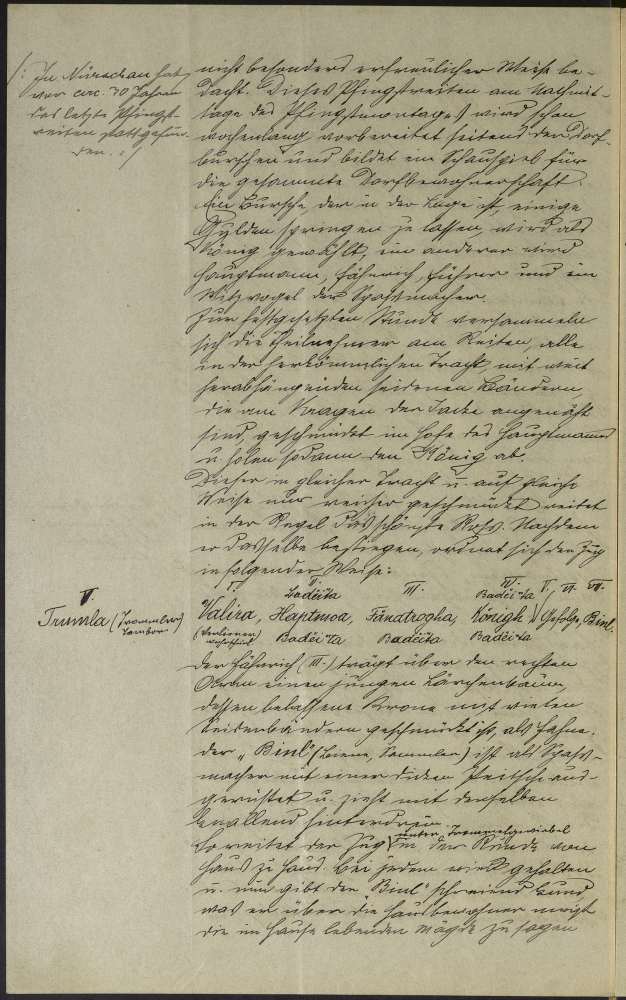 /: In Nürschan hat
vor circ. 70 Jahren
das letzte Pfingst-
reiten stattgefun-
den. :/
nicht besonders erfreulicher Weise be-
dacht. Dieses Pfingstreiten am Nachmit-
tage des Pfingstmontages wird schon
wochenlang vorbereitet seitens der Dorf-
burschen und bildet ein Schauspiel für
die gesammte Dorfbewohnerschaft.
Ein Bursche, der in der Lage ist, einige
Gulden springen zu lassen, wird als
König gewählt, ein anderer wird
Hauptmann, Fähnrich, Führer und ein
Witzvogel der Spaßmacher.
Zur festgesetzten Stunde versammeln
sich die Theilnehmer am Reiten, alle
in der herkömmlichen Tracht, mit weit
herabhängenden seidenen Bändern,
die am Kragen der Jacke angenäht
sind, geschmückt im Hofe des Hauptmanns
u. holen sodann den König ab.
Dieser in gleicher Tracht u. auf gleiche
Weise nur reicher geschmückt reitet
in der Regel das schönste Ross. Nachdem
er dasselbe bestiegen, ordnet sich der Zug
in folgender Weise:
V. I. II. III. IV. V., VI. VII.
Badeita Badeita
Trumla (Trommler) Valira, Haptmoa, Fänatrogha, Königh Gefolge, Binl.
Tambor Badeita Badeita Badeita
Der Fähnrich (III.) trägt über den rechten
Arm einen jungen Lärchenbaum,
dessen belassene Krone mit vielen
Seidenbändern geschmückt ist, als Fahne.
Der „Binl" (Biene, Sammler) ist als Spass-
macher mit einer dicken Peitsche aus-
gerüstet u. zieht mit derselben
knallend hinterdrein.
unter Trommelgewirbel
So reitet der Zug in der Runde von
Haus zu Haus. Bei jedem wird gehalten
u. nun gibt der „Binl" schreiend kund,
was er über die Hausbewohner
die im Hause lebenden Mägde zu sagen